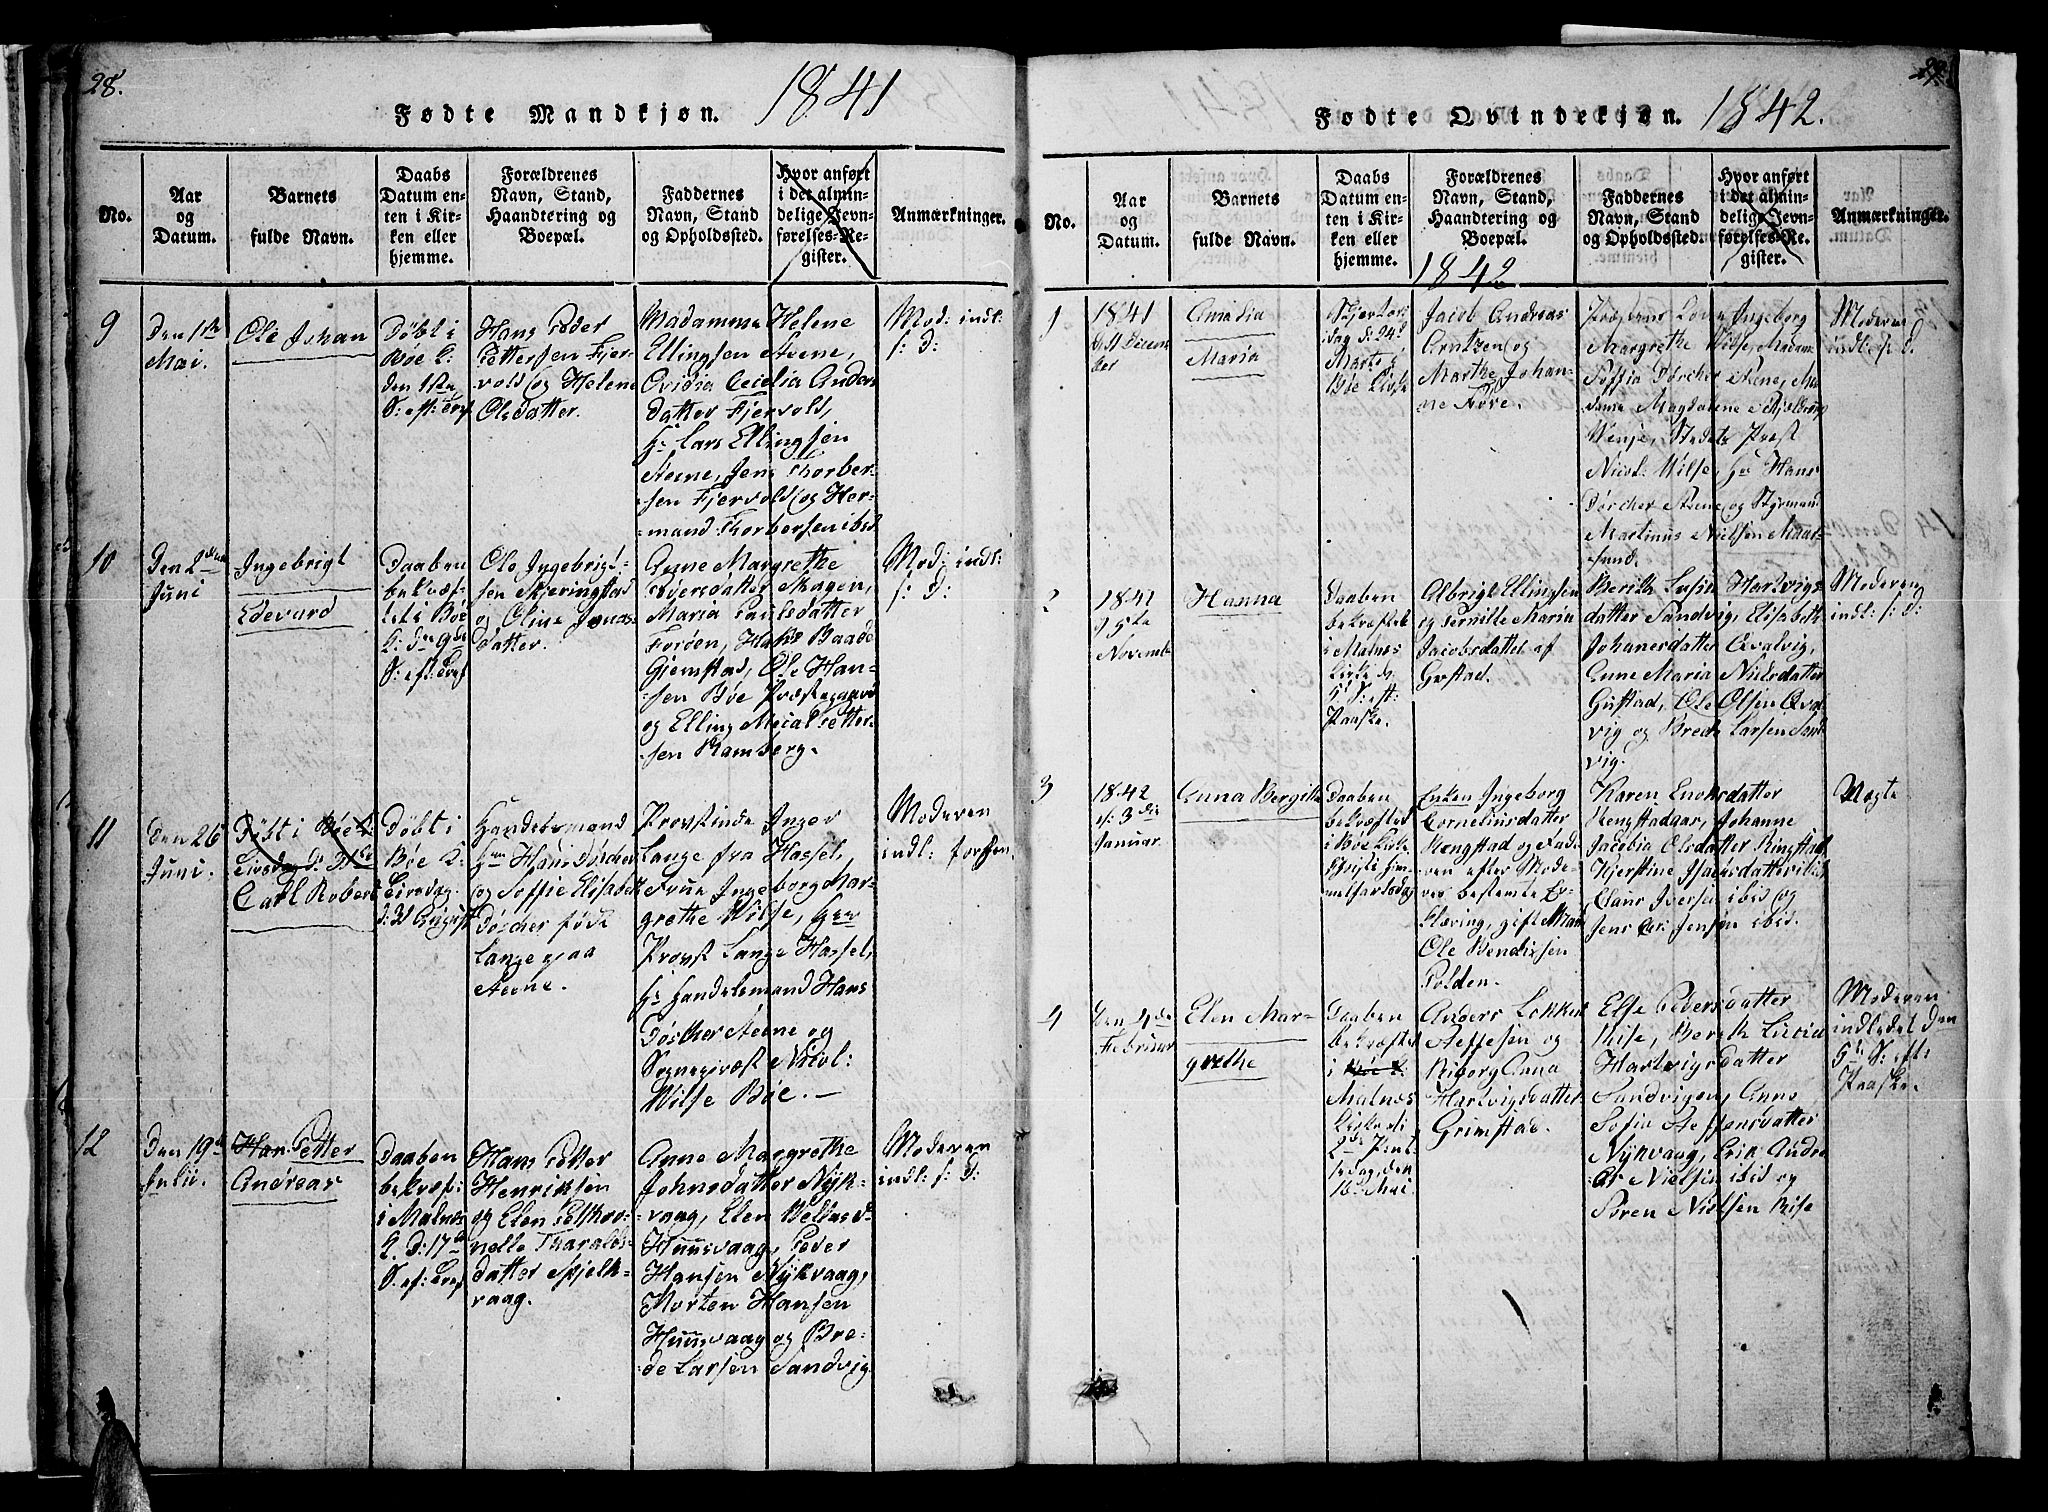 28.
Fødte Mandkjøn. 1841
No.
Aar
og
Datum.
Barnets
fulde Navn.
Daabs
Datum en-
ten i Kir-
ken eller
hjemme.
Forældrenes
Navn, Stand,
Haandtering og
Boepæl.
Faddernes
Navn, Stand
og Opholdssted.
Hvor anført
i det almin-
delige Jevn-
førelses-Re-
gister.
Anmærkninger.
9
Den 1ste
Mai.
Ole Johan
Døbt i
Böe K:
den 1ste
S: eft: Tref
Hans Peder
Pettersen Fjer-
vold og Helene
Olsdatter.
Madamme Helene
Ellingsen Steene,
Ovidia Cecelia Anders
datter Fjervold,
Hr Lars Ellingsen
Steene, Jens Thorber-
sen Fjervold og Her-
mand Thorbersen ibid
Mod: indl:
s: D:
10
Den 2den
Juni
Ingebrigt
Edevard
Daaben
bekræf-
tet i Böe
K: dn 9de
S: eft: Tref
Ole Ingebrigt-
sen Skjeringstad
og Oline Jonas-
datter.
Anne Margrethe
Pedersdatter Skagen,
Maria Paulsdatter
Forøen, Hans Baade
Gimstad, Ole Han-
sen Böe Præstegaard
og Elling Mical Petter-
sen Ramberg.
Mod: indl:
s: D:
11
Den 26
Juni.
Døbt i Böe K:
Tirsdag d: 31de
Carl Robert
Døbt i
Böe K:
Tirsdag
d: 31 August
Handelsmand
Hrr Hans Dörcher
og Soffie Elisabeth
Dörcher født
Lange paa
Steene.
Provstinde Inger
Lange fra Hassel,
Frue Ingeborg Mar-
grethe Wilse, Herr
Provst Lange Hassel,
Hr Handelsmand Hans
Dörcher Steene og
Sognepræst Nicol:
Wilse Böe.
Moderen
indl: forhen.
12
Den 19de
Julii.
Han Petter
Andreas
Daaben
bekræf:
i Malnes
K. D: 17de
S: ef: Tref
Hans Petter
Henriksen
og Elen Petthro-
nelle Tharalds-
datter Spjelk-
vaag.
Anne Margrethe
Johnsdatter Nyk-
vaag, Elen
Huusvaag, Peder
Hansen Nykvaag,
Morten Hansen
Huusvaag og Bre-
de Larsen Sandvig
Moderen
indl: s: D:
29.
Fødte Qvindekjøn. 1842.
No.
Aar
og
Datum.
Barnets
fulde Navn.
Daabs
Datum en-
ten i Kir-
ken eller
hjemme.
Forældrenes
Navn, Stand,
Haandtering og
Boepæl.
1842
Faddernes
Navn, Stand
og Opholdssted.
Hvor anført
i det almin-
delige Jevn-
førelses-Re-
gister.
Anmærkninger.
1
1841
Decem-
ber
Amalia
Maria
Skjertors
dag d: 24de
Marts i
Böe Kirke
Jacob Andreas
Arntzen og
Marthe Johan-
ne Fore.
Ingeborg
Margrethe Wilse, Madam
Soffia Dörcher Steene, Ma-
damme Magdalene
Stedets Præst
Nicol: Wilse, Hr Hans
Dörcher Steene og Styrmand
Martinus Nielsen
sund.
Moderen
indl: s: d.
2
1841
d 5te
Novembr
Hanna
Daaben
bekræftet
i Malnes
Kirke d.
5te S: eft:
Paaske.
Albrigt Ellingsen
og Pernille Marin
Jacobsdatter af
Gustad.
Berith Lusin Hartvigs-
datter Sandvig, Elisabeth
Johanesdatter Qvalvig,
Anne Maria Nielsdatter
Gustad, Ole Olsen Qval-
vig og Brede Larsen Sand-
vig.
Moderen
indl: s: D:
3
1842
d: 3die
Januar.
Anna Bergitte
Daaben
bekræftet
i Böe Kirke
Christi Him-
melfartsdag
Enken Ingeborg
Cornelinsdatter
Rengstad og Fade-
ren efter Mode-
res bestemte Er-
klæring, gift Mand
Ole Bendixsen
Polden.
Karen Enoksdatter
Johanne
Jacobia Olsdatter Ringstad,
Kjerstine Isacksdatter ibid
Claus Iversen ibid og
Jens Chr: Jensen ibid.
Nægte
4
Den 4de
Februar
Elen Mar-
grethe
Daaben
bekræftet
i Böe K:
Malnes
Kirke di
2den Pint-
sedag, den
16de Mai
Anders Lokkert
Steffesen og
Riborg Anna
Hartvigsdatter
Grimstad.
Else Pedersdatter
Rise, Berith Lucia
Hartvigsdatter
Sandvigen, Anne
Sofia Steffensdatter
Nykvaag, Erik Andre-
as Nielsen ibid og
Søren Nielsen Rise
Moderen
indledet den
5te S: eft:
Paaske.